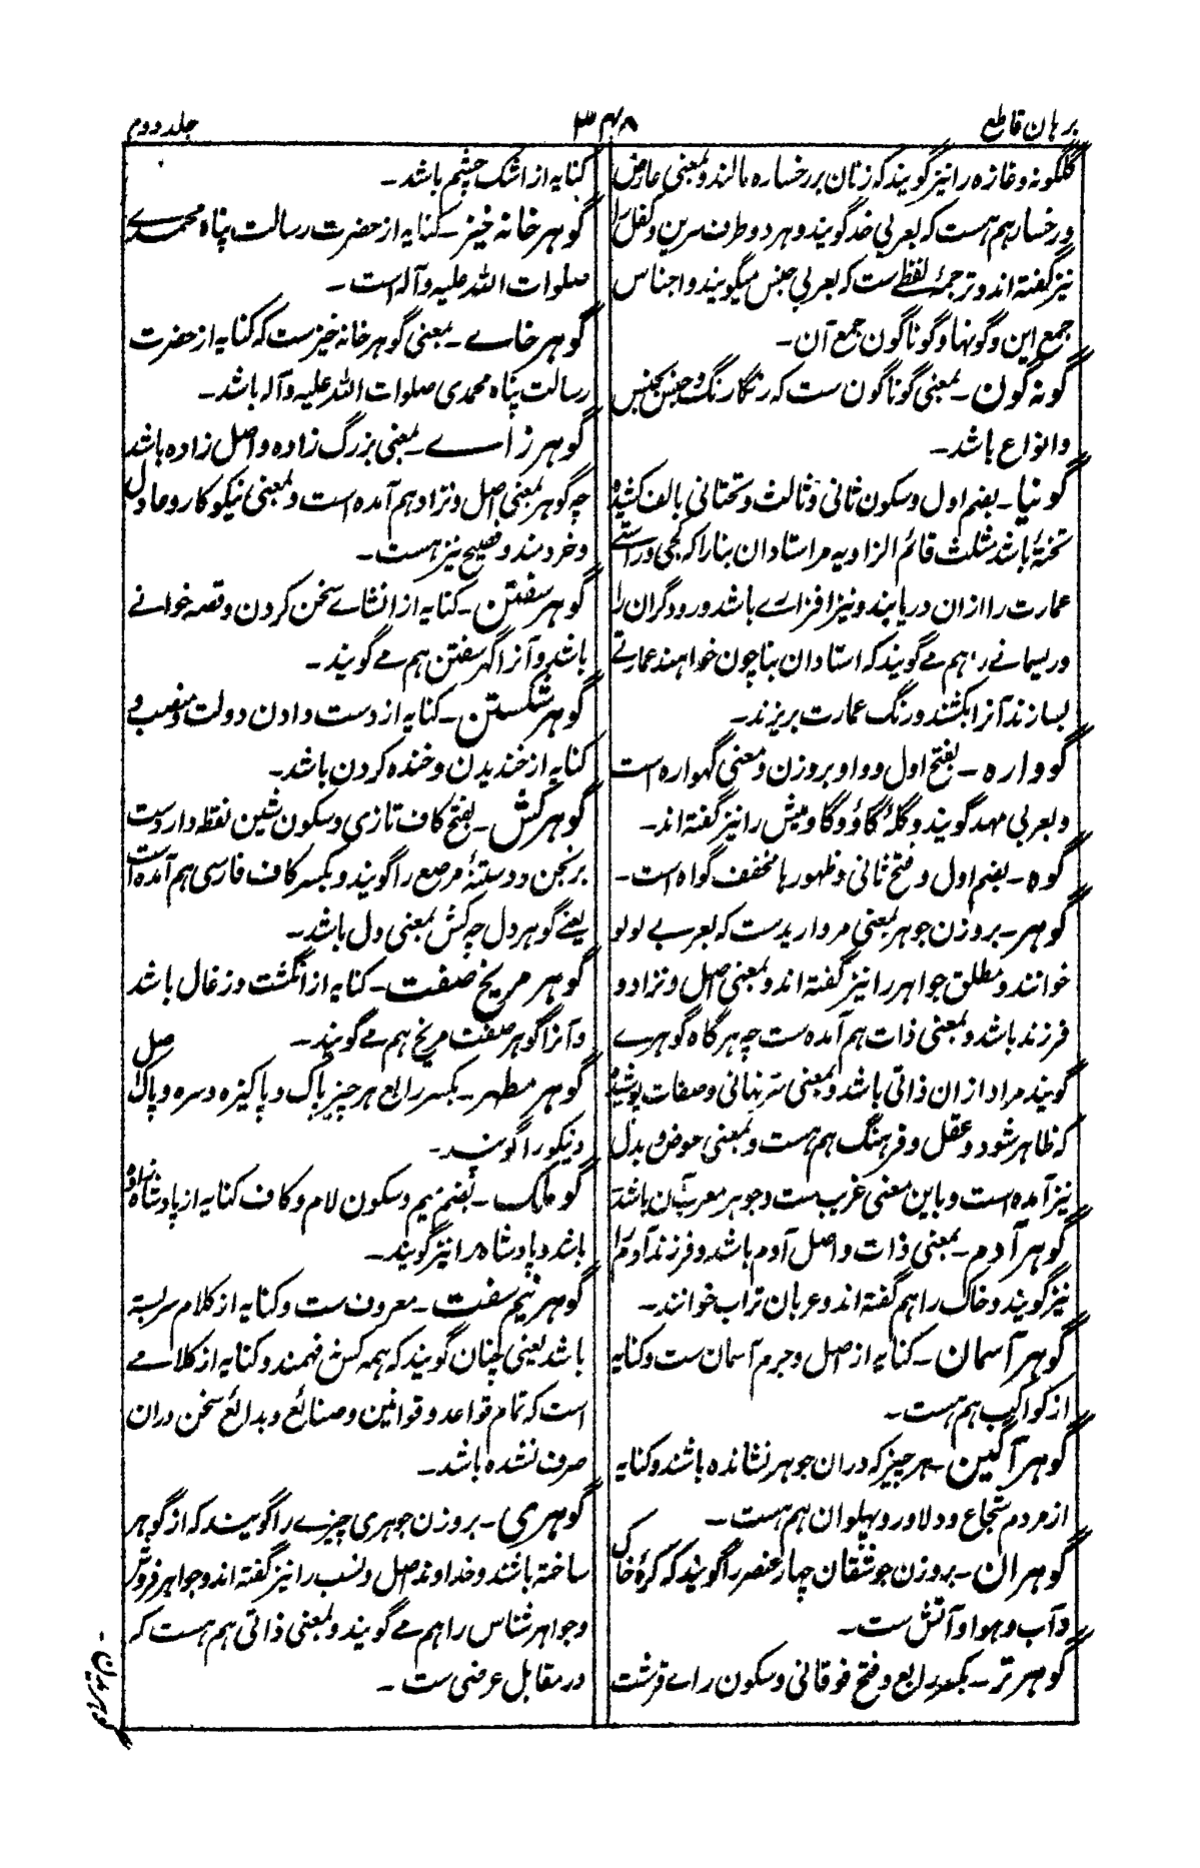 برهان قاطع
۳۴۸
جلد دوم
گلگونه و غازه را نیز گویند که زنان بر رخساره مالند و بمعنی عارض
و رخسار هم هست که بعربی خد گویند و هر دو طرف سرین و کفل را
نیز گفته اند و ترجمهٔ لفظے ست که بعربی جنس میگویند و اجناس
جمع این و گونها و گوناگون جمع آن۔
گونه گون۔ بمعنی گوناگون ست که رنگارنگ و جنس بجنس
و انواع باشد۔
گونیا۔ بضم اول و سکون ثانی و ثالث و تحتانی بالف کشیده
تختهٔ باشد مثلث قائم الزاویه مر استادان بنا را که کجی و راستے
عمارت را ازان دریابند و نیز افزارے باشد درودگران را
و ریسمانے را هم مے گویند که استادان بنا چون خواهند عمارتے
بسازند آنرا بکشند و رنگ عمارت بریزند۔
گوواره۔ بفتح اول و واو بروزن و معنی گهواره است
و بعربی مهد گویند و گلهٔ گاؤ و گاومیش را نیز گفته اند۔
گوه۔ بضم اول و فتح ثانی و ظهور ها مخفف گواه است۔
گوهر۔ بروزن جوهر بمعنی مروارید ست که بعربے لولو
خوانند و مطلق جواهر را نیز گفته اند و بمعنی اصل و نژاد و
فرزند باشد و بمعنی ذات هم آمده ست چه هرگاه گوهرے
گویند مراد ازان ذاتی باشد و بمعنی سر نهانی و صفات پوشیده
که ظاهر شود و عقل و فرهنگ هم هست و بمعنی عوض و بدل
نیز آمده است و باین معنی غریب ست و جوهر معرب آن باشد
گوهر آدم۔ بمعنی ذات و اصل آدم باشد و فرزند آدم را
نیز گویند و خاک را هم گفته اند و عربان تراب خوانند۔
گوهر آسمان۔ کنایه از اصل و جرم آسمان ست و کنایه
از کواکب هم هست۔
گوهر آگین۔ هر چیز که دران جوهر نشانده باشند و کنایه
از مردم شجاع و دلاور و پهلوان هم هست۔
گوهران۔ بروزن جوشقان چهار عنصر را گویند که کرهٔ خاکی
و آب و هوا و آتش ست۔
گوهر تر۔ بکسر رابع و فتح فوقانی و سکون راے قرشت
کنایه از اشک چشم باشد۔
گوهر خانه خیز۔ کنایه از حضرت رسالت پناه محمدے
صلوات الله علیه و آله است۔
گوهر خاے۔ بمعنی گوهر خانه خیز ست که کنایه از حضرت
رسالت پناه محمدی صلوات الله علیه و آله باشد۔
گوهر زاے۔ بمعنی بزرگ زاده و اصل زاده باشد
چه گوهر بمعنی اصل و نژاد هم آمده است و بمعنی نیکوکار و عادل
و خردمند و فصیح نیز هست۔
گوهر سفتن۔ کنایه از انشاے سخن کردن و قصه خوانے
باشد و آنرا گهر سفتن هم مے گویند۔
گوهر شکستن۔ کنایه از دست دادن دولت و منصب و
کنایه از خندیدن و خنده کردن باشد۔
گوهرکش۔ بفتح کاف تازی و سکون شین نقطه دار دست
برنجن و دستنهٔ مرصع را گویند و بکسر کاف فارسی هم آمده است
یعنے گوهر دل چه کش بمعنی دل باشد۔
گوهر مریخ صفت۔ کنایه از انگشت و زغال باشد
و آنرا گوهر صفت مریخ هم مے گویند۔
گوهر مطهر۔ بکسر رابع هر چیز پاک و پاکیزه و سره و پاک اصل
و نیکو را گویند۔
گوهر ملک۔ بضم میم و سکون لام و کاف کنایه از پادشاه زاده
باشد و پادشاه را نیز گویند۔
گوهر نیم سفت۔ معروف ست و کنایه از کلام سربسته
باشد یعنی چنان گویند که همه کس نفهمند و کنایه از کلامے
است که تمام قواعد و قوانین و صنائع و بدائع سخن دران
صرف نشده باشد۔
گوهری۔ بروزن جوهری چیزے را گویند که از گوهر
ساخته باشند و خداوند اصل و نسب را نیز گفته اند و جواهر فروش
و جواهر شناس را هم مے گویند و بمعنی ذاتی هم هست که
در مقابل عرضی ست۔